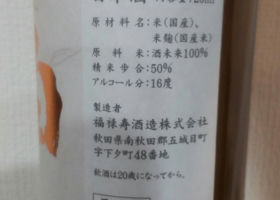 日本酒
720ml
原材料名：米(国産)、
米麹(国産米)
原料米：酒未来100%
精米歩合：50%
アルコール分：16度
製造者
福禄寿酒造株式会社
秋田県南秋田郡五城目町
字下夕町48番地
飲酒は20歳になってから。